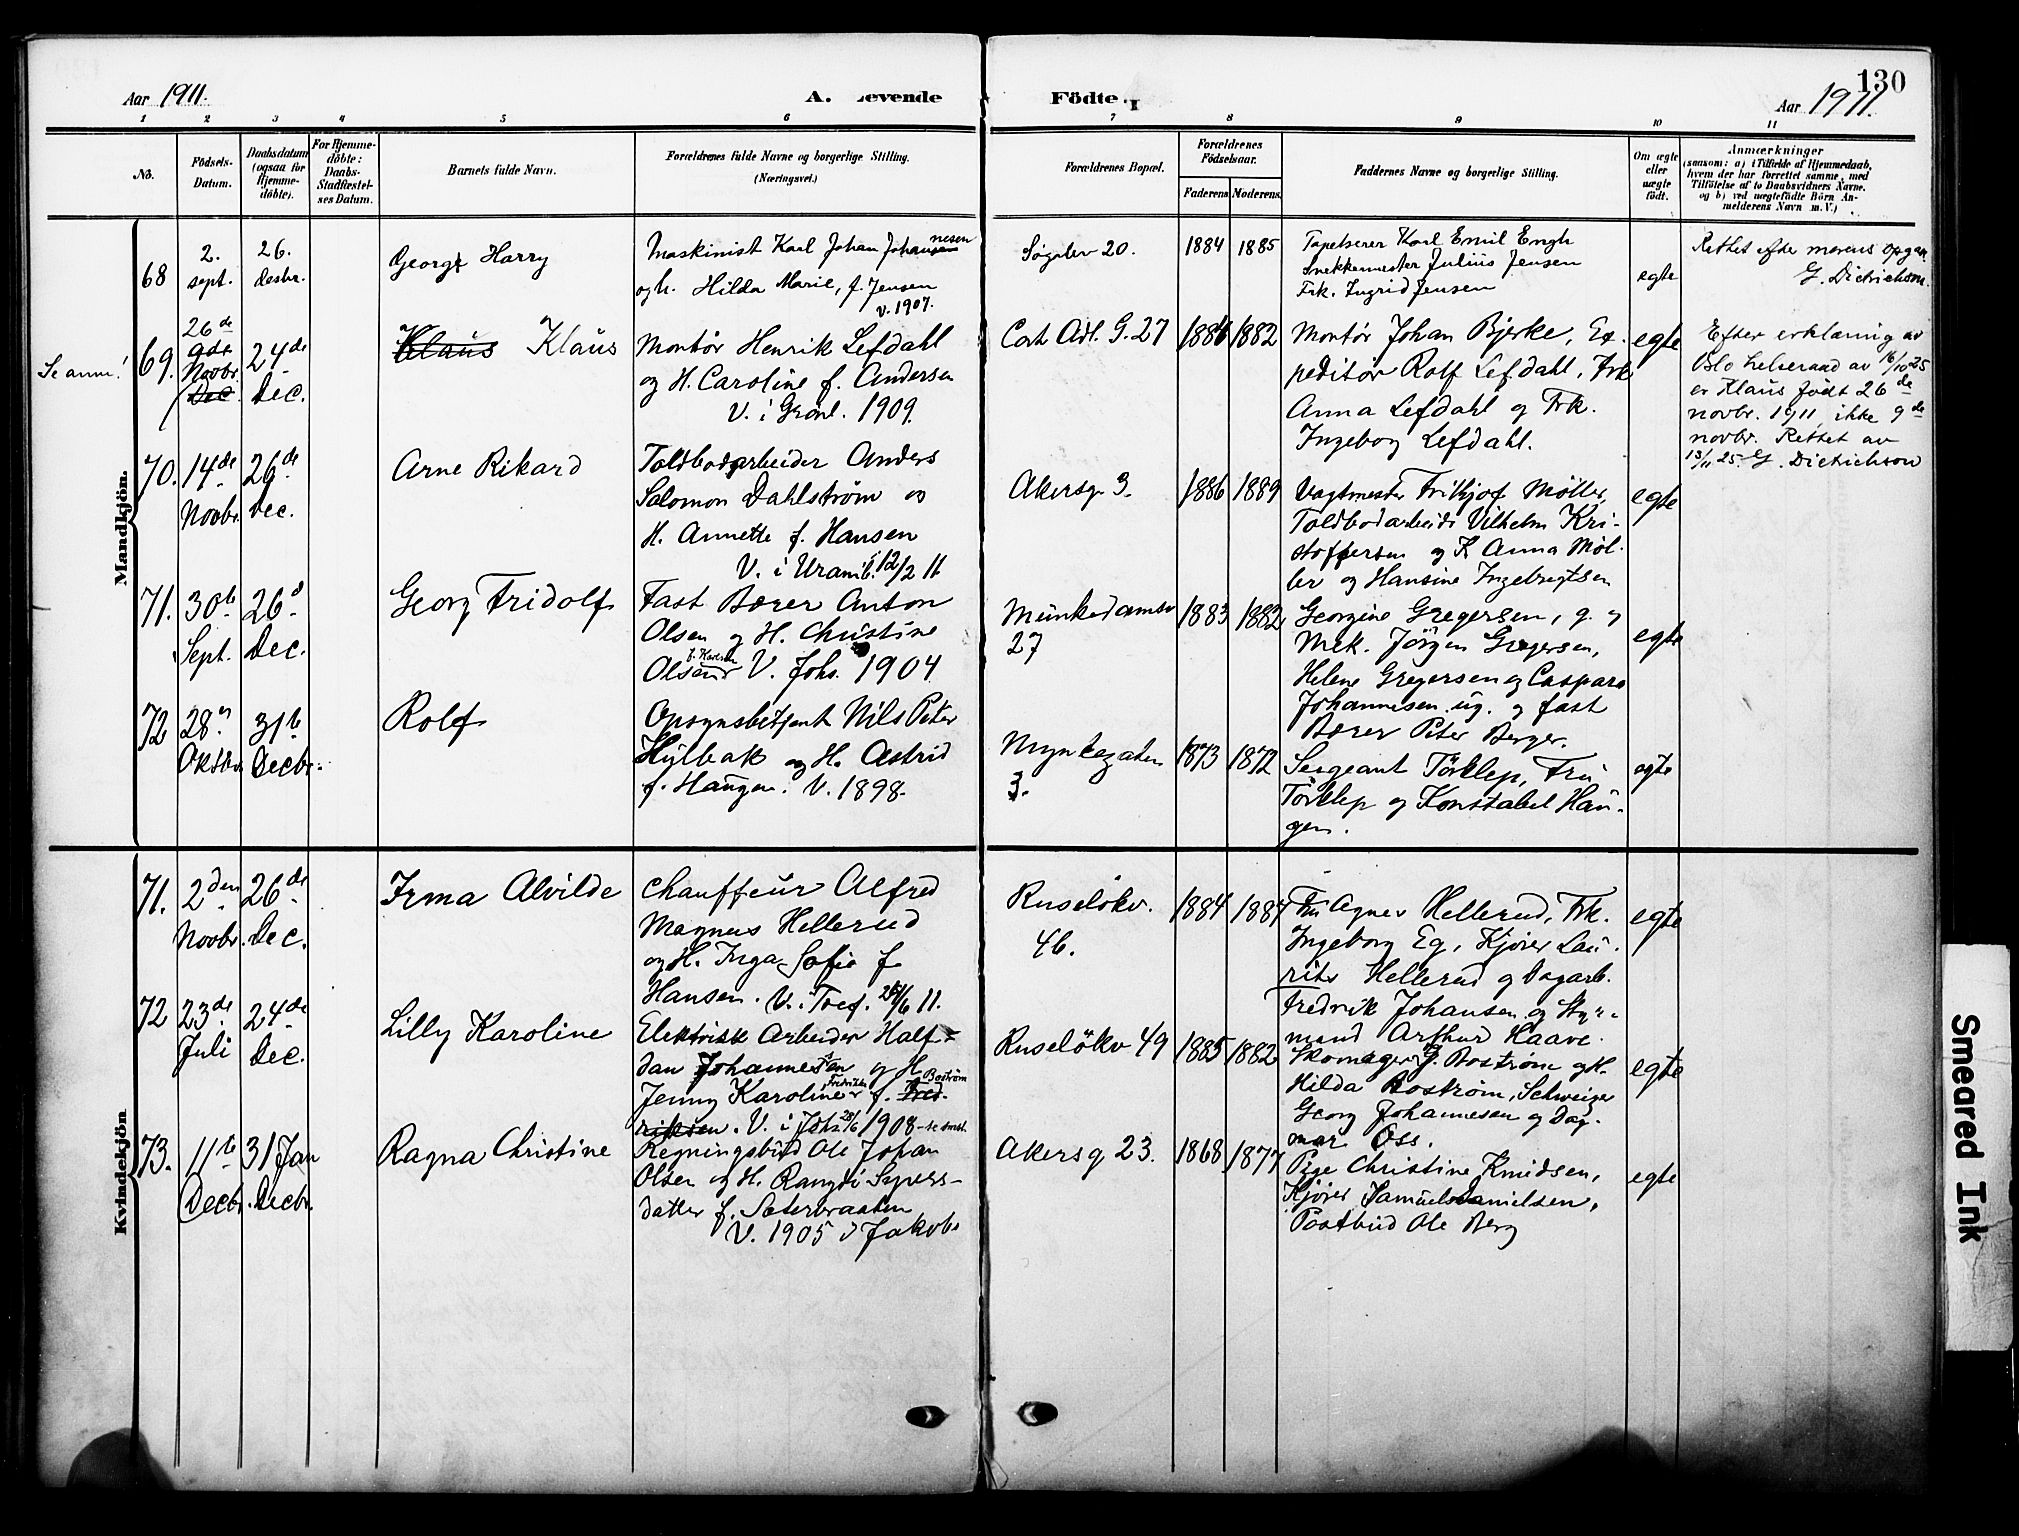 130
Aar 1911.
A. Levende
Födte.
Aar 1911.
1 2 3 4 5 6 7 8 9 10 11
No.
Födsels-
Datum.
Daabsdatum
(ogsaa for
Hjemme-
döbte).
For Hjemme-
döbte:
Daabs-
Stadfæstel-
ses Datum.
Barnets fulde Navn.
Forældrenes fulde Navne og borgerlige Stilling.
(Næringsvei.)
Forældrenes Bopæl.
Forældrenes
Födselsaar.
Faderens Moderens.
Faddernes Navne og borgerlige Stilling.
Om ægte
eller
uægte
födt.
Anmærkninger
(saasom: a) i Tilfælde af Hjemmedaab,
hvem der har forrettet samme, med
Tilföielse af to Daabsvidners Navne.
og b) ved uægtefödte Börn An-
melderens Navn m. V.)
Mandkjön.
68
2.
sept.
26.
desbr.
Georg Harry
Maskinist Karl Johan Johannesen
og h. Hilda Marie, f. Jensen
v. 1907.
20.
1884 1885
Tapetserer Karl Emil Engh
Snekkermester Julius Jensen
Frk. Ingrid Jensen
egte
Rettet efter morens opgav
G. Dietrichson.
Se anm.!
69.
26de
9de
Novbr.
Dec.
24de
Dec.
Klaus Klaus
Montør Henrik Lefdahl
og H. Caroline f. Andersen
V. i Grønl. 1909.
Cort Adl. G. 27
1886 1882
Montør Johan Bjerke, Ex-
peditør Rolf Lefdahl, Frk
Anna Lefdahl og Frk.
Ingeborg Lefdahl.
egte
Efter erklæring av
Oslo helseraad av 16/10 25
er Klaus født 26de
novbr. 1911, ikke 9de
novbr. Rettet av
13/11 25. G. Dietrichson
70.
14de
Novbr.
26de
Dec.
Arne Rikard
Toldbodarbeider Anders
Salomon Dahlstrøm og
H. Annette f. Hansen
V. i Uranib. 12/2 11
Akersg. 3.
1886 1889
Vagtmester Frithjof Møller,
Toldbodarbeid. Vilhelm Kri-
stoffersen og Fr. Anna Møl-
ler og Hansine Ingebrigtsen
egte
71.
30te
Sept.
26d
Dec.
Georg Fridolf
Fast Bærer Anton
Olsen og H. Christine
Olsen f. Karlsen V. Johs. 1904
Munkedamsv
27
1883 1882
Georgine Gregersen, g. og
Mek. Jörgen Gregersen,
Helene Gregersen og Caspara
Johannesen ug. og fast
Bærer Peter Berger.
egte
72
28
Oktbr.
31te
Decbr.
Rolf
Opsynsbetjent Nils Peter
Hylbak og H. Astrid
f. Haugen. V. 1898.
Myntegaten
3.
1873 1872
Sergeant Törklep, Fru
Törklep og Konstabel Hau-
gen.
egte
Kvindekjön
71.
2den
Novbr.
26de
Dec.
Irma Alvilde
Chauffeur Alfred
Magnus Hellerud
og H. Inga Sofie f.
Hansen. V. i Tref. 24/6 11.
Ruselökv.
46.
1884 1884
Fru Agnes Hellerud, Frk.
Ingeborg Eg, Kjører Lau-
ritz Hellerud og Dagarb.
Fredrik Johansen og Styr-
mand Arthur Haave.
egte
72
23de
Juli
24de
Dec.
Lilly Karoline
Elektrisk Arbeider Half-
dan Johannesen og H.
Jenny Karoline Fredrikke f. Boström Fred-
riksen. V. i Johs. 28/6 1908 - se anm.
Ruselökv 49
1885 1882
Skomager J. Boström og H.
Hilda Boström, Schweiger
Georg Johannesen og Dag-
mar Oss.
egte
73.
11te
Decbr.
31 Jan
Decbr.
Ragna Christine
Regningsbud Ole Johan
Olsen og H. Rangdi Syvers-
datter f. Sæterbraaten
V. 1905 i Jakobs
Akersg 23.
1868 1877
Pige Christine Knudsen,
Kjører Samuel Danielsen,
Postbud Ole Berg
egte
Smeared Ink